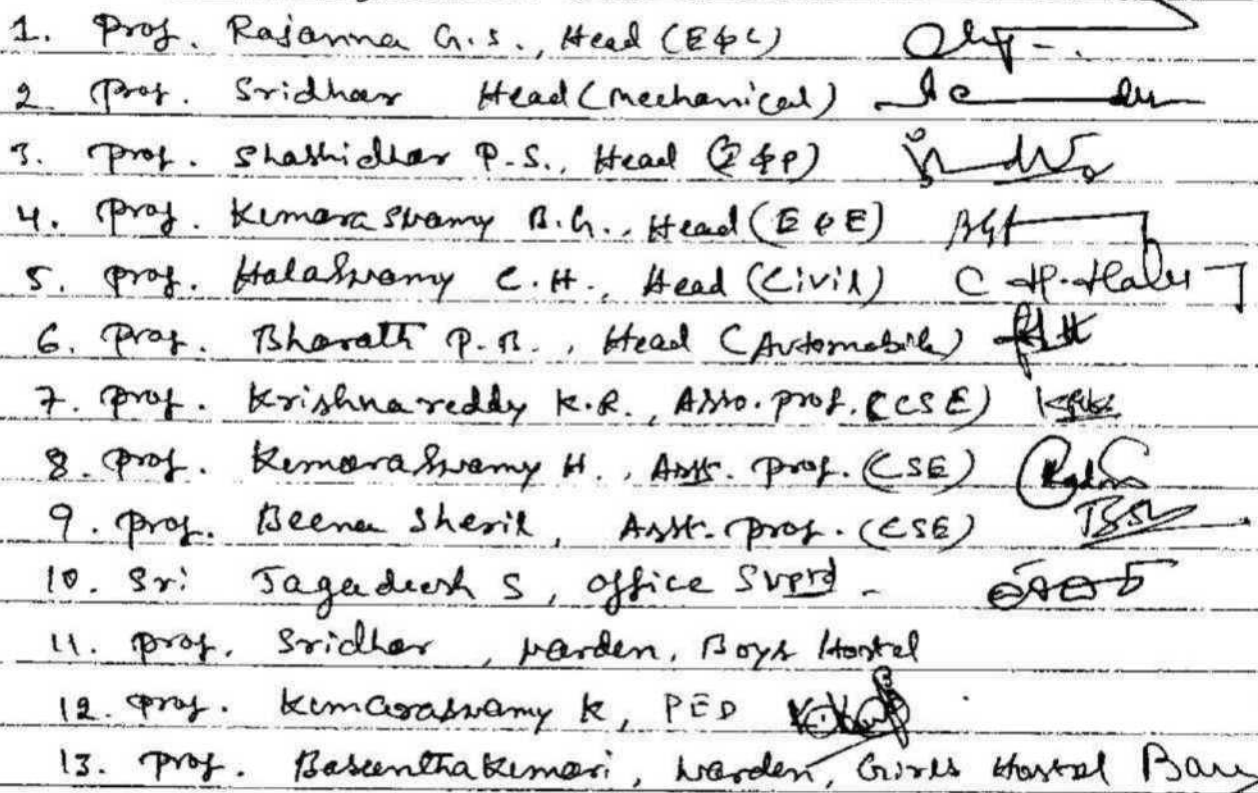 1. Prof. Rajanna G.S., Head (E&C)
2. Prof. Sridhar Head (Mechanical)
3. Prof. Shashidhar P.S., Head (I&P)
4. Prof. Kumaraswamy B.G., Head (E&E)
5. Prof. Halaswamy C.H., Head (Civil) C.H. Hala
6. Prof. Bharath P.B., Head (Automobile)
7. Prof. Krishnareddy K.R., Asso. prof. (CSE)
8. Prof. Kumaraswamy H., Asst. prof. (CSE)
9. Prof. Beena Sheril, Asst. prof. (CSE)
10. Sri Jagadeesh S, office Suprd -
11. Prof. Sridhar, warden, Boys Hostel
12. Prof. Kumaraswamy K, PED
13. Prof. Basanthakumari, warden, Girls Hostel